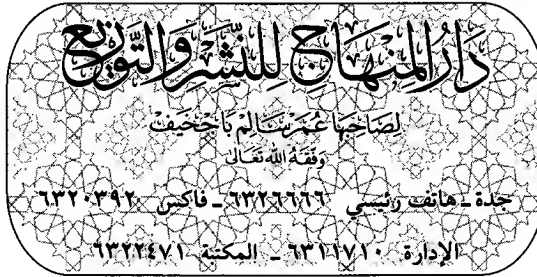 دَارُ المِنْهَاجِ لِلنَّشِرِ وَالتَّوْزِيعِ
لِصَاحِبِهَا عُمَرْ سَالِمْ بَاجْخَيفْ
وَفَّقَهُ اللّٰهُ تَعَالَىٰ
جدة ـ هاتف رئيسي ٦٣٢٦٦٦٦ ـ فاكس ٦٣٢٠٣٩٢
الإدارة ٦٣١١٧١٠ ـ المكتبة ٦٣٢٢٤٧١